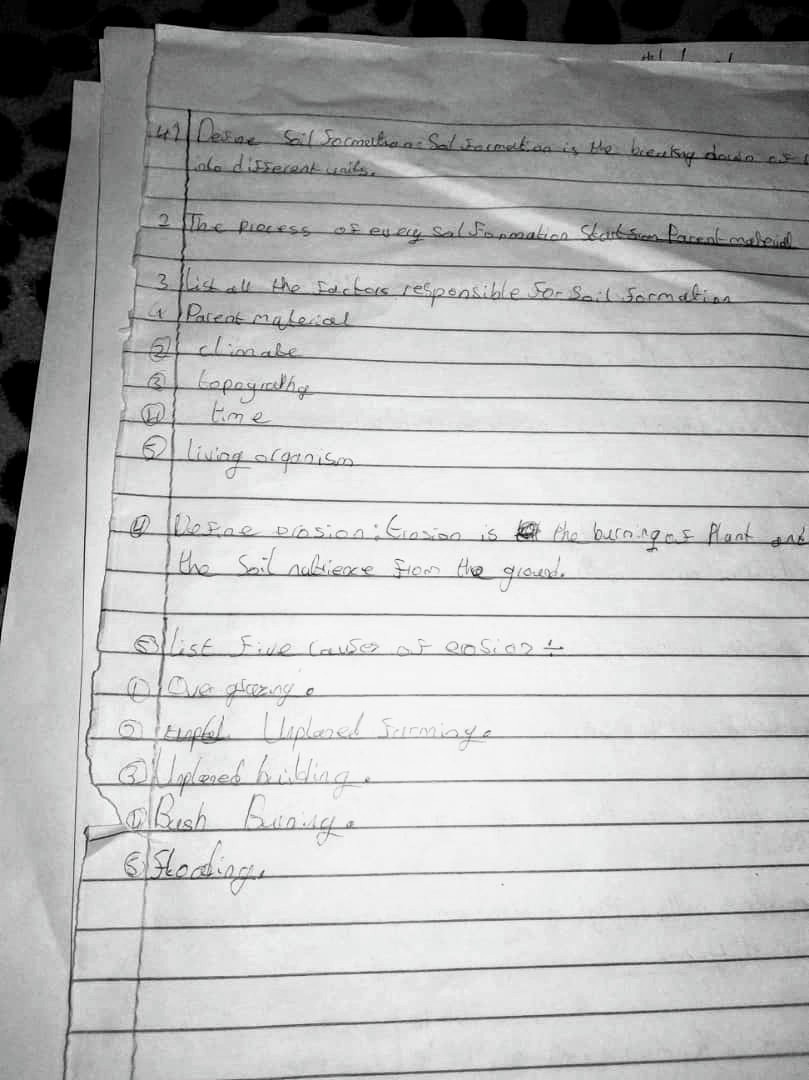 41 Define Soil formation:- Sol formation is the breaking down of
into different units.
2 The process of every sol formation Start from Parent material
3 List all the factors responsible for Soil formation
Parent material
② climate
③ topography
④ time
⑤ living organism
④ Define erosion: Erosion is the burning of Plant and
the Soil nutrience from the ground.
⑤ list five causes of erosion ÷
① Over grazing.
② Unplaned farming.
③ Unplaned building.
④ Bush Burning.
⑤ flooding.